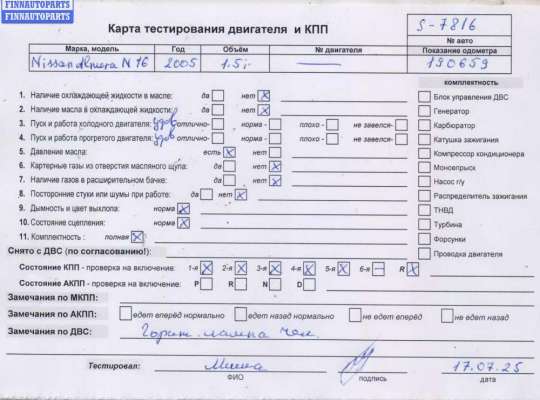 FINNAUTOPARTS
FINNAUTOPARTS
Карта тестирования двигателя и КПП
S-7816
№ авто
Марка, модель Год Объём № двигателя Показание одометра
Nissan Almera N16 2005 1.5i — 190659
комплектность
1. Наличие охлаждающей жидкости в масле: да нет X
Блок управления ДВС
2. Наличие масла в охлаждающей жидкости: да нет X
Генератор
3. Пуск и работа холодного двигателя: удов отлично- норма - плохо - не завелся-
Карбюратор
4. Пуск и работа прогретого двигателя: удов отлично- норма - плохо - не завелся-
Катушка зажигания
5. Давление масла: есть X нет
Компрессор кондиционера
6. Картерные газы из отверстия масляного щупа: да нет X
Моновпрыск
7. Наличие газов в расширительном бачке: да нет X
Насос г/у
8. Посторонние стуки или шумы при работе: да нет X
Распределитель зажигания
9. Дымность и цвет выхлопа: норма X
ТНВД
10. Состояние сцепления: норма X
Турбина
11. Комплектность : полная X
Форсунки
Снято с ДВС (по согласованию!):
Проводка двигателя
Состояние КПП - проверка на включение: 1-я X 2-я X 3-я X 4-я X 5-я X 6-я — R X
Состояние АКПП - проверка на включение: P R N D
Замечания по МКПП:
Замечания по АКПП: едет вперёд нормально едет назад нормально не едет вперёд не едет назад
Замечания по ДВС: Горит лампа чек.
Тестировал: Миша 17.07.25
ФИО подпись дата